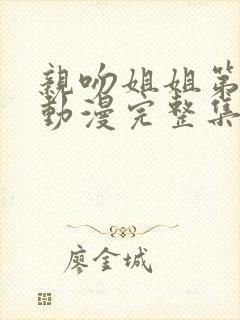 親吻姐姐第
動漫完整集
廖金城